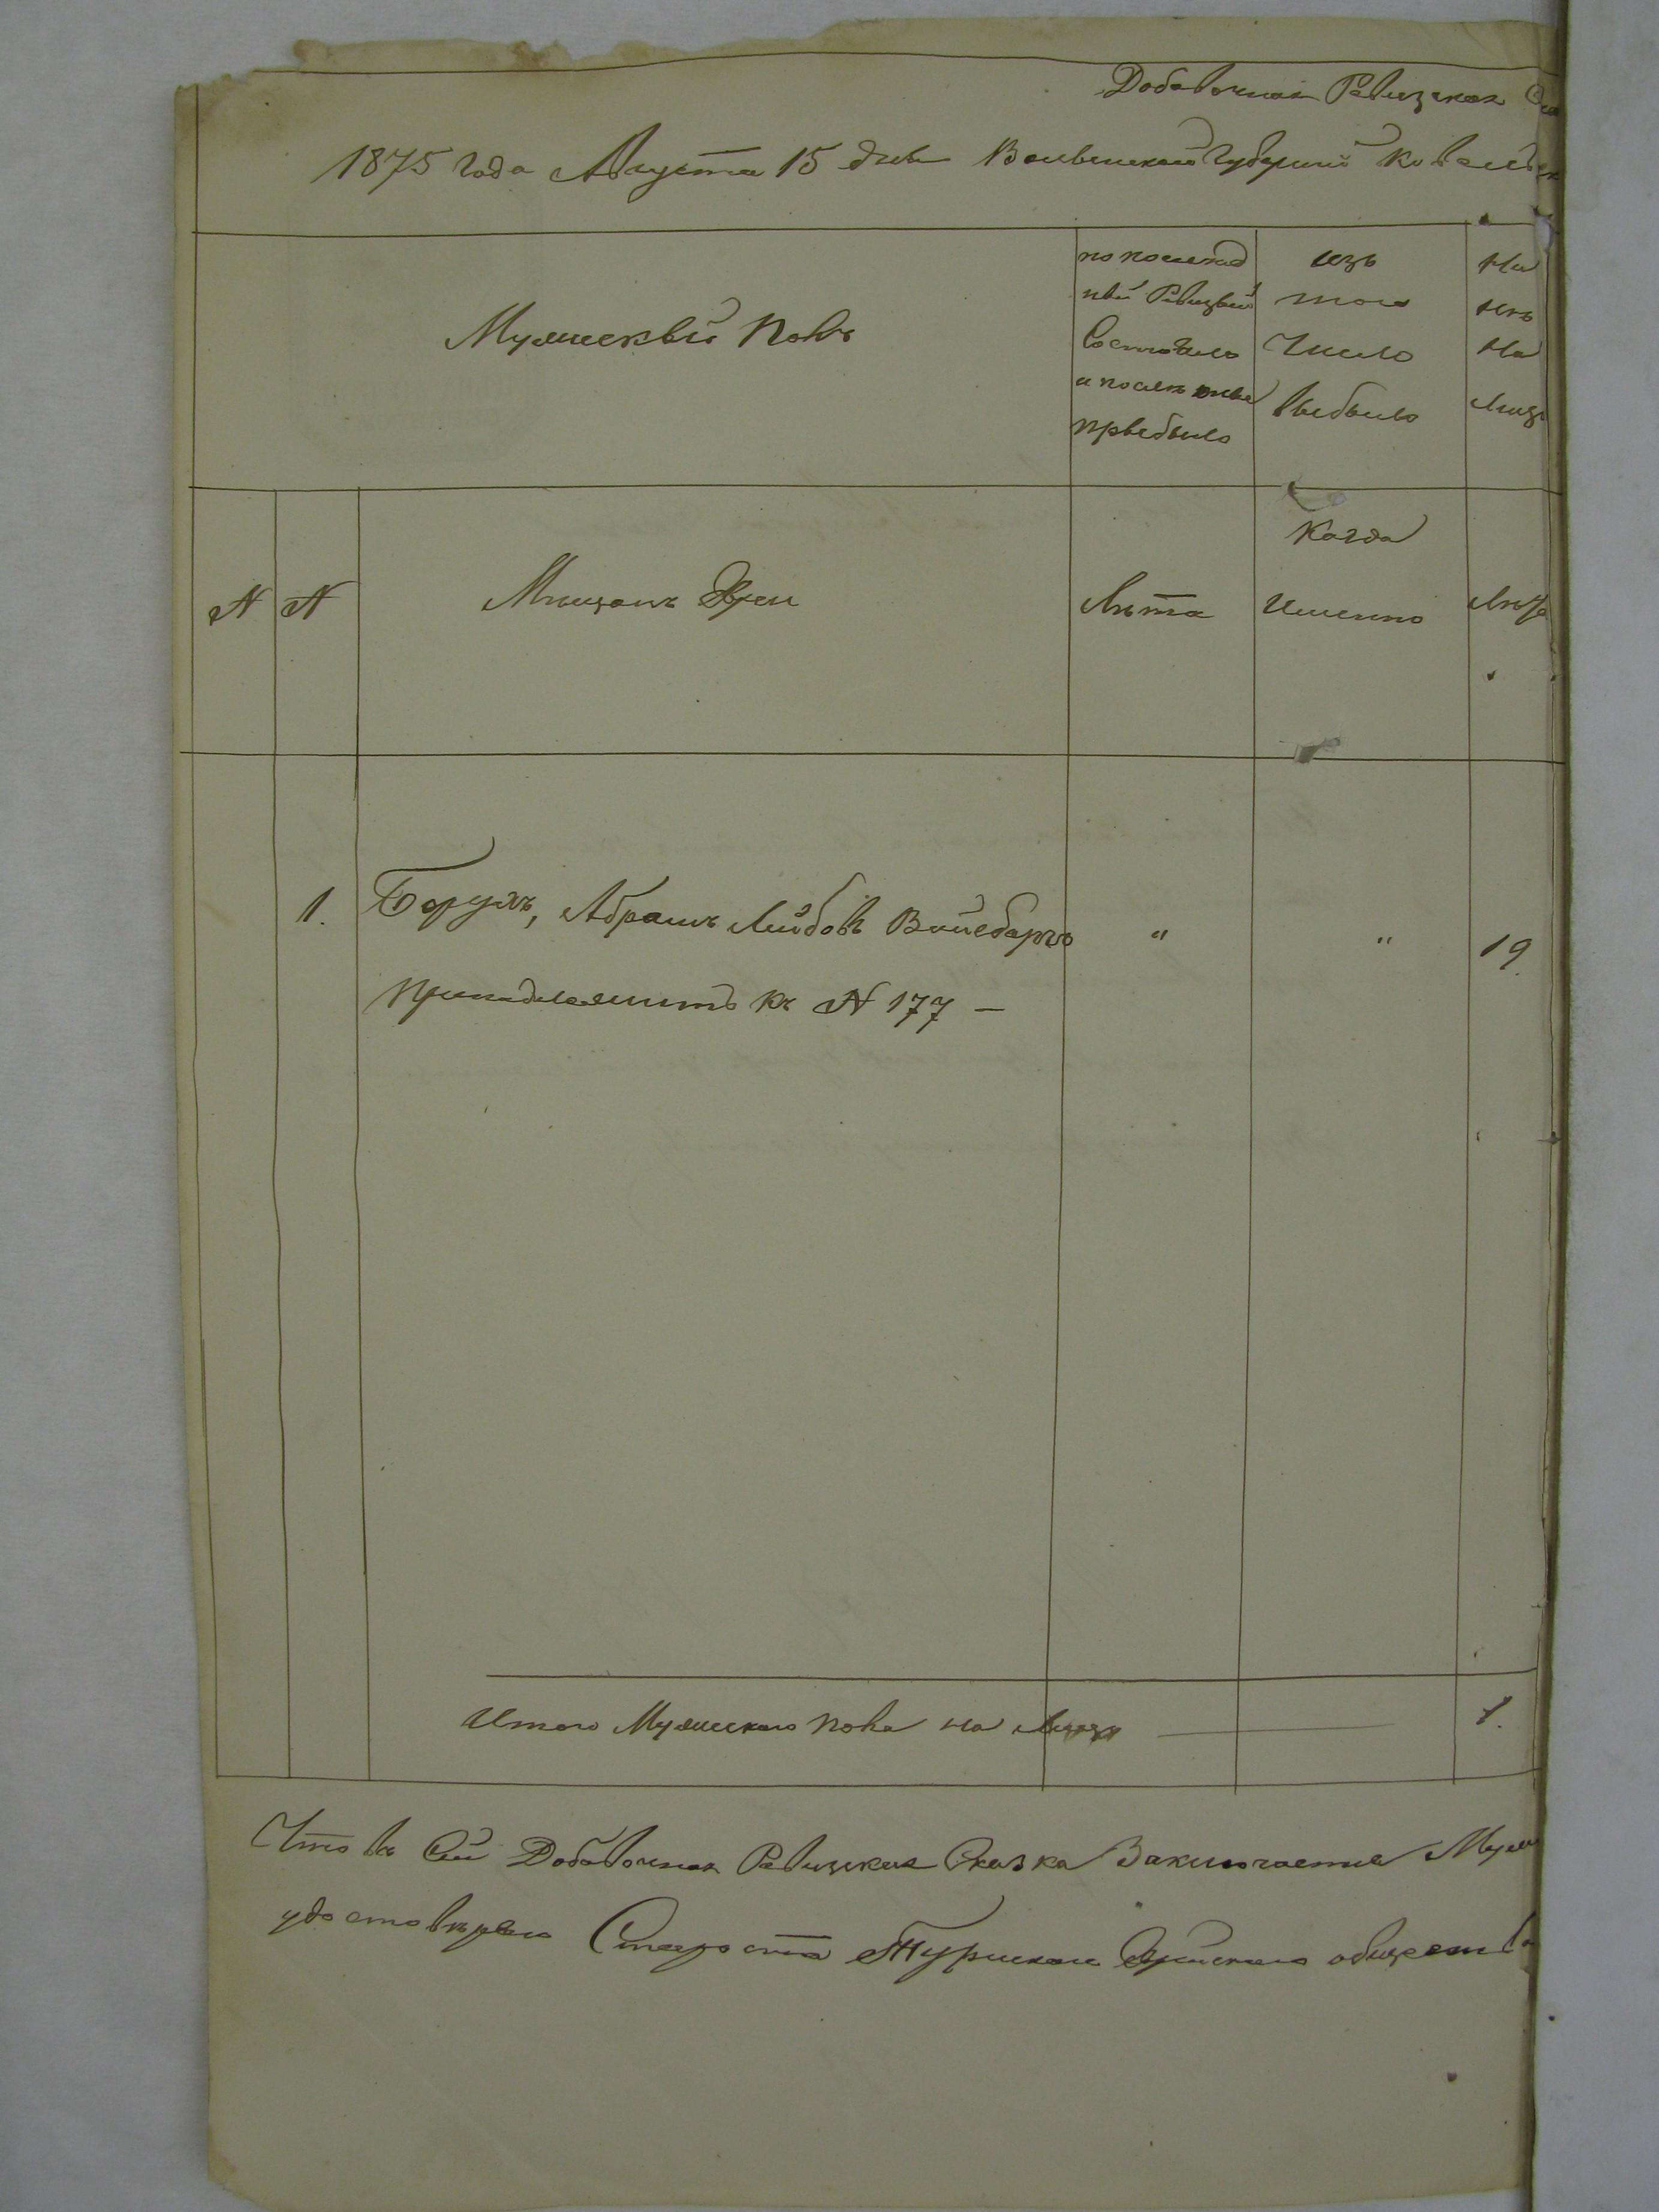 Добавочная Ревизская Ска
1875 года Августа 15 дня Волынской Губернiи Ковельск
Мужескый Полъ
по послед
ней Ревизiи
Состояло
и после оные
прыбыло
изъ
того
Число
выбыло
На
лицо
Мещанъ Евреи
Когда
Именно
№
№
Лѣта
Лѣта
1.
Борухъ, Абрамъ Лейбовъ Вайсбаргъ
"
"
19
принадлежитъ къ № 177 —
Итого Мужескаго пола на лицо
1.
Что въ Сей Добавочная Ревизская Сказка Заключается Муж
удостовѣряю Староста Турискаго Еврейскаго общества